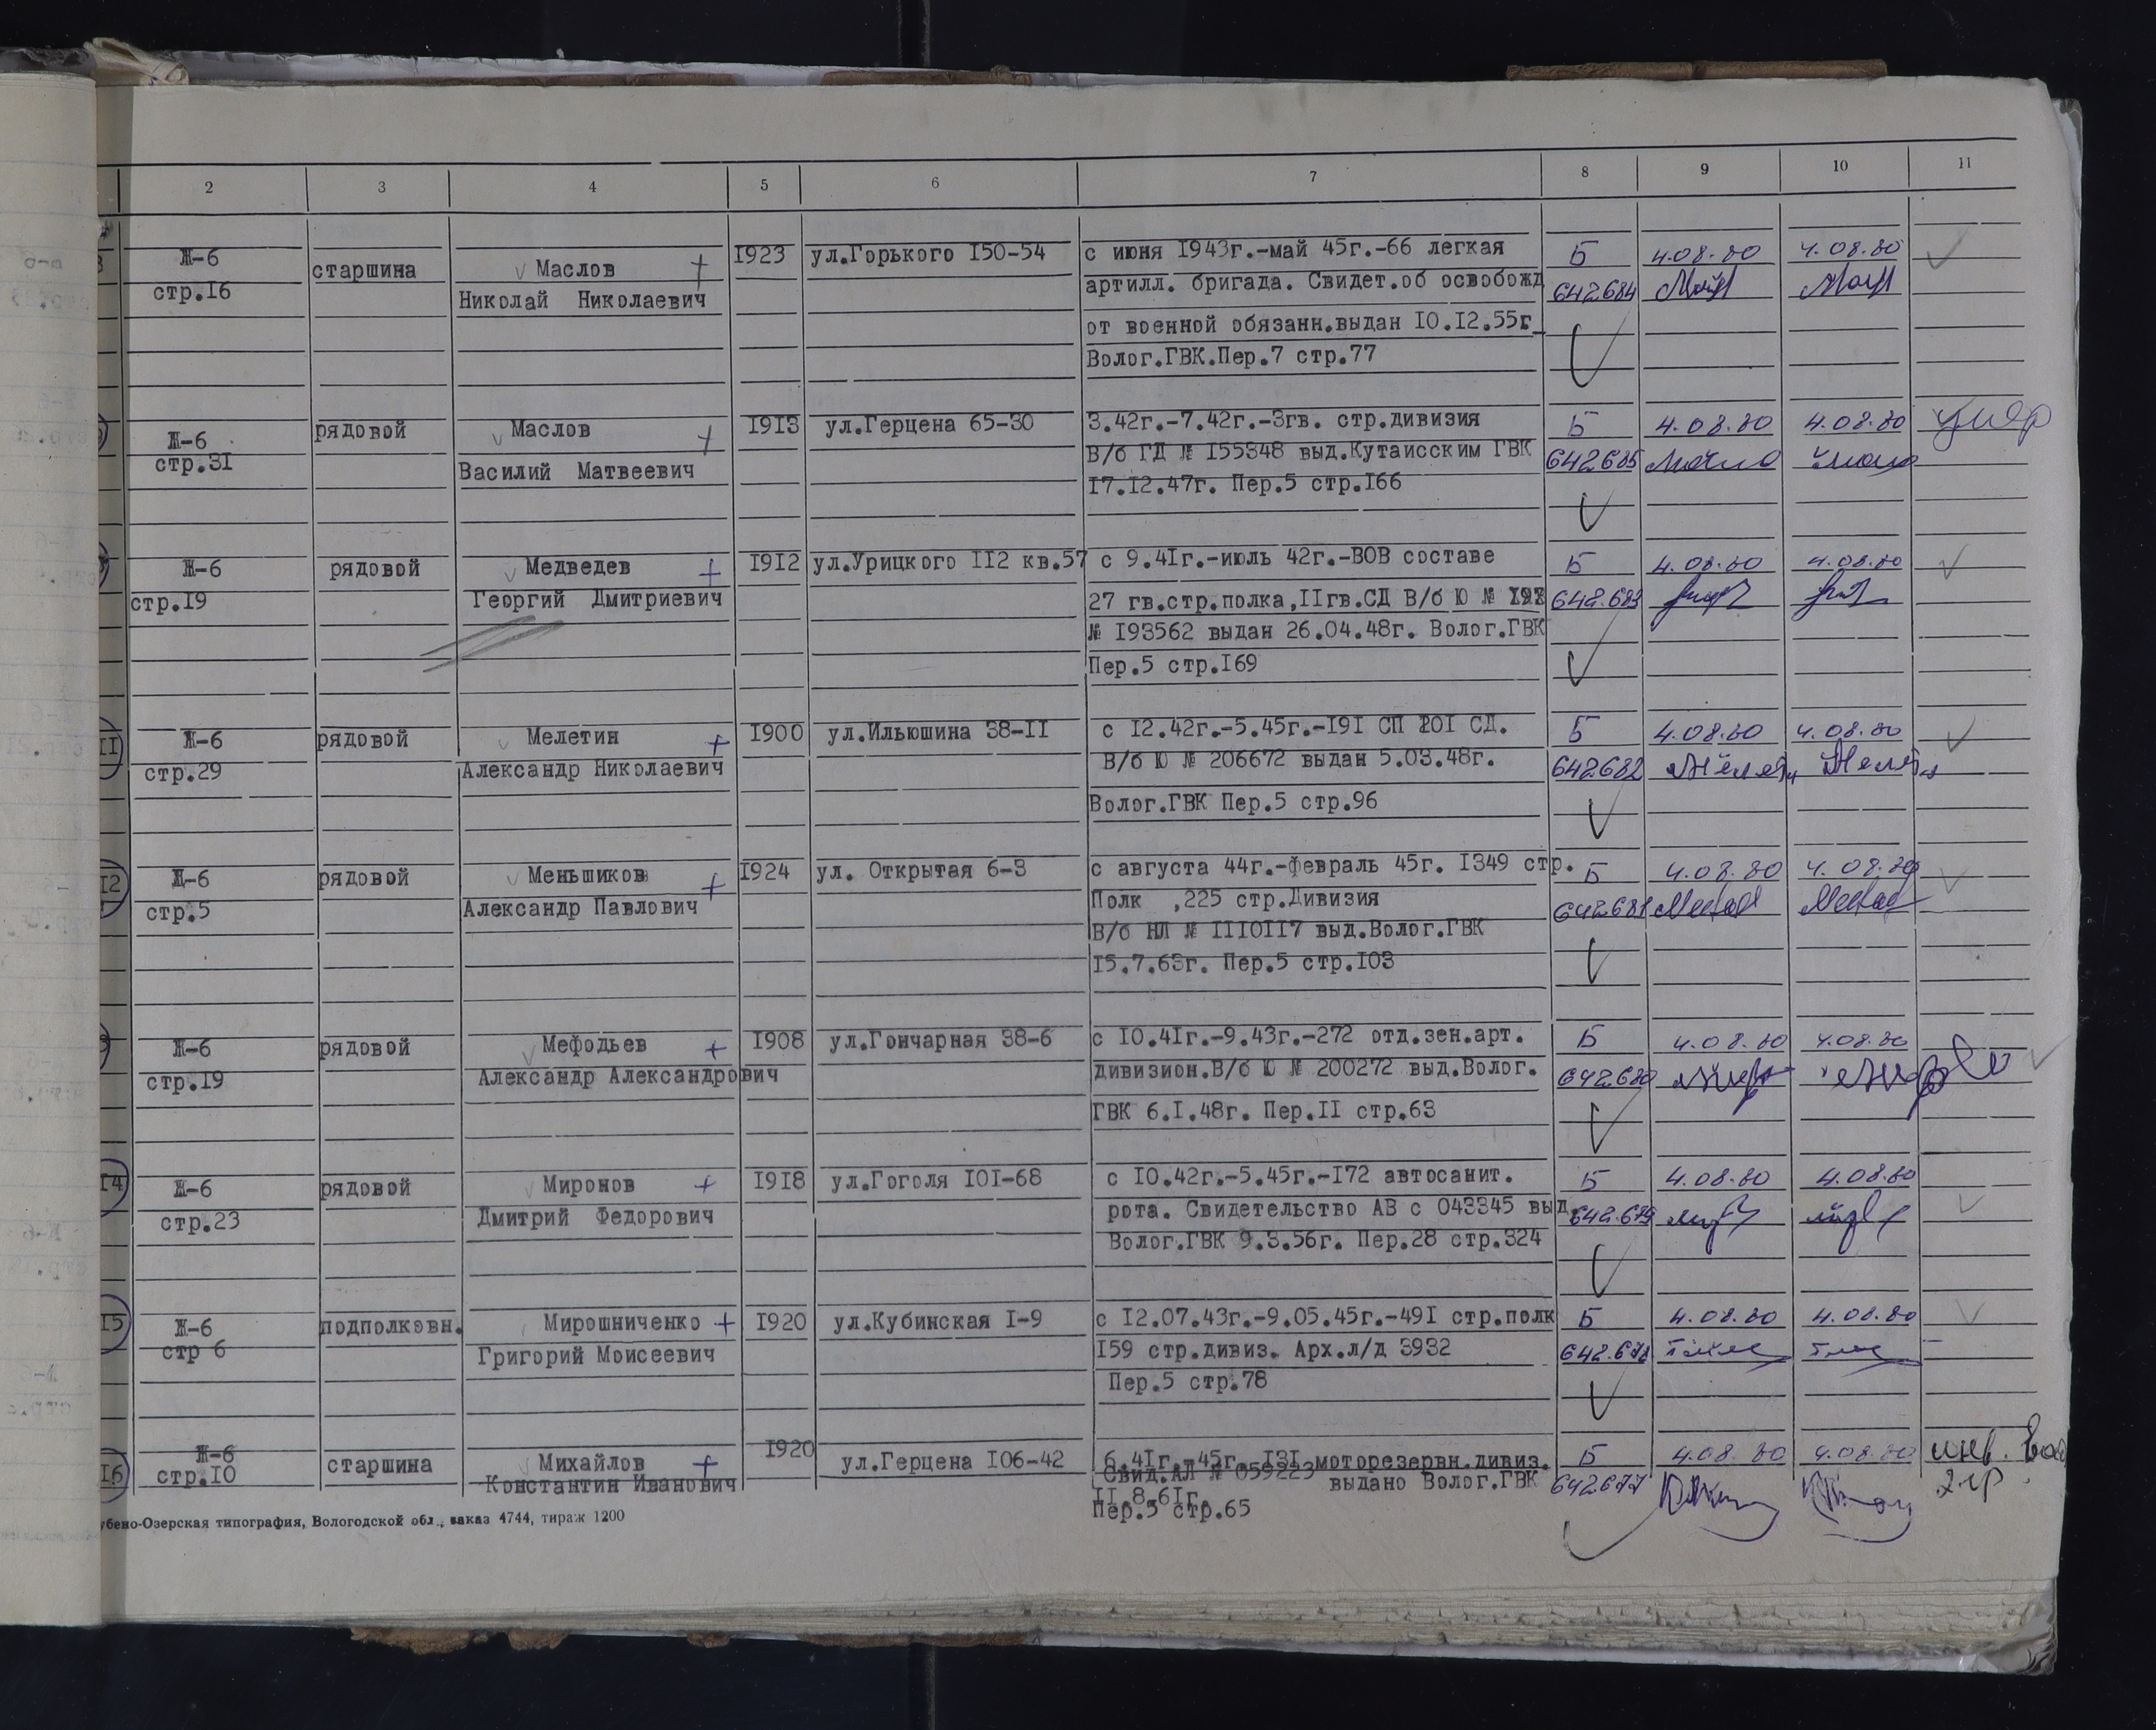 2 3 4 5 6 7 8 9 10 11
Ж-6 старшина Маслов + 1923 ул.Горького 150-54 с июня 1943г.-май 45г.-66 легкая Б 4.08.80 4.08.80
стр.16 Николай Николаевич артилл. бригада. Свидет.об освобожд 642684
от военной обязанн.выдан 10.12.55г
Волог.ГВК.Пер.7 стр.77
Ж-6 рядовой Маслов + 1913 ул.Герцена 65-30 3.42г.-7.42г.-3гв. стр.дивизия Б 4.08.80 4.08.80 умер
стр.31 Василий Матвеевич В/б ГД № 155348 выд.Кутаисским ГВК 642685
17.12.47г. Пер.5 стр.166
Ж-6 рядовой Медведев + 1912 ул.Урицкого 112 кв.57 с 9.41г.-июль 42г.-ВОВ составе Б 4.08.80 4.08.80
стр.19 Георгий Дмитриевич 27 гв.стр.полка,11гв.СД В/б Ю № 642683
№ 193562 выдан 26.04.48г. Волог.ГВК
Пер.5 стр.169
11 Ж-6 рядовой Мелетин + 1900 ул.Ильюшина 38-11 с 12.42г.-5.45г.-191 СП 201 СД. Б 4.08.80 4.08.80
стр.29 Александр Николаевич В/б Ю № 206672 выдан 5.03.48г. 642682
Волог.ГВК Пер.5 стр.96
12 Ж-6 рядовой Меньшиков + 1924 ул. Открытая 6-3 с августа 44г.-февраль 45г. 1349 стр. Б 4.08.80 4.08.80
стр.5 Александр Павлович Полк ,225 стр.Дивизия 642681
В/б НЛ № 1110117 выд.Волог.ГВК
15.7.63г. Пер.5 стр.103
Ж-6 рядовой Мефодьев + 1908 ул.Гончарная 38-6 с 10.41г.-9.43г.-272 отд.зен.арт. Б 4.08.80 4.08.80
стр.19 Александр Александрович дивизион.В/б Ю № 200272 выд.Волог. 642680
ГВК 6.1.48г. Пер.11 стр.63
14 Ж-6 рядовой Миронов + 1918 ул.Гоголя 101-68 с 10.42г.-5.45г.-172 автосанит. Б 4.08.80 4.08.80
стр.23 Дмитрий Федорович рота. Свидетельство АВ с 043345 выд. 642679
Волог.ГВК 9.3.56г. Пер.28 стр.324
15 Ж-6 подполковн. Мирошниченко + 1920 ул.Кубинская 1-9 с 12.07.43г.-9.05.45г.-491 стр.полк Б 4.08.80 4.08.80
стр 6 Григорий Моисеевич 159 стр.дивиз. Арх.л/д 3932 642678
Пер.5 стр.78
16 Ж-6 старшина Михайлов + 1920 ул.Герцена 106-42 6.41г.-45г.-131 моторезервн.дивиз. Б 4.08.80 4.08.80 инв.
стр.10 Константин Иванович Свид.АЛ № 059223 выдано Волог.ГВК 642677 2 гр.
11.8.61г.
Пер.5 стр.65
убено-Озерская типография, Вологодской обл., заказ 4744, тираж 1200